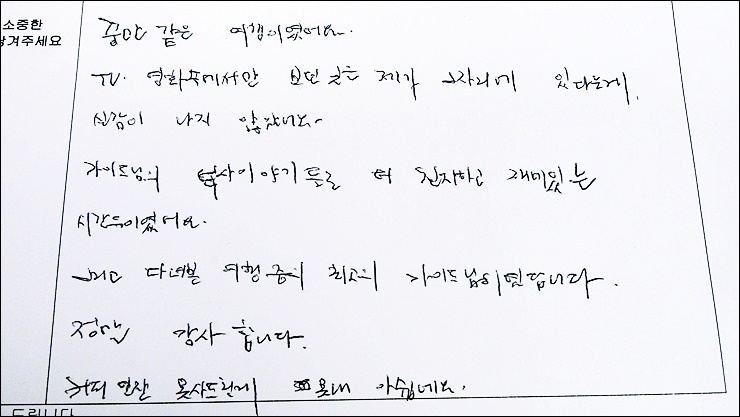 소중한
남겨주세요
꿈만 같은 여행이였어요.
TV. 영화속에서만 보던 곳을 제가 그자리에 있다는게,
실감이 나지 않았네요~
가이드님의 역사이야기들로 더 진지하고 재미있는
시간들이였어요.
그리고 다녀본 여행중의 최고의 가이드님이였답니다.
정말 감사합니다.
커피 한잔 못사드린게 못내 아쉽네요.
드립니다